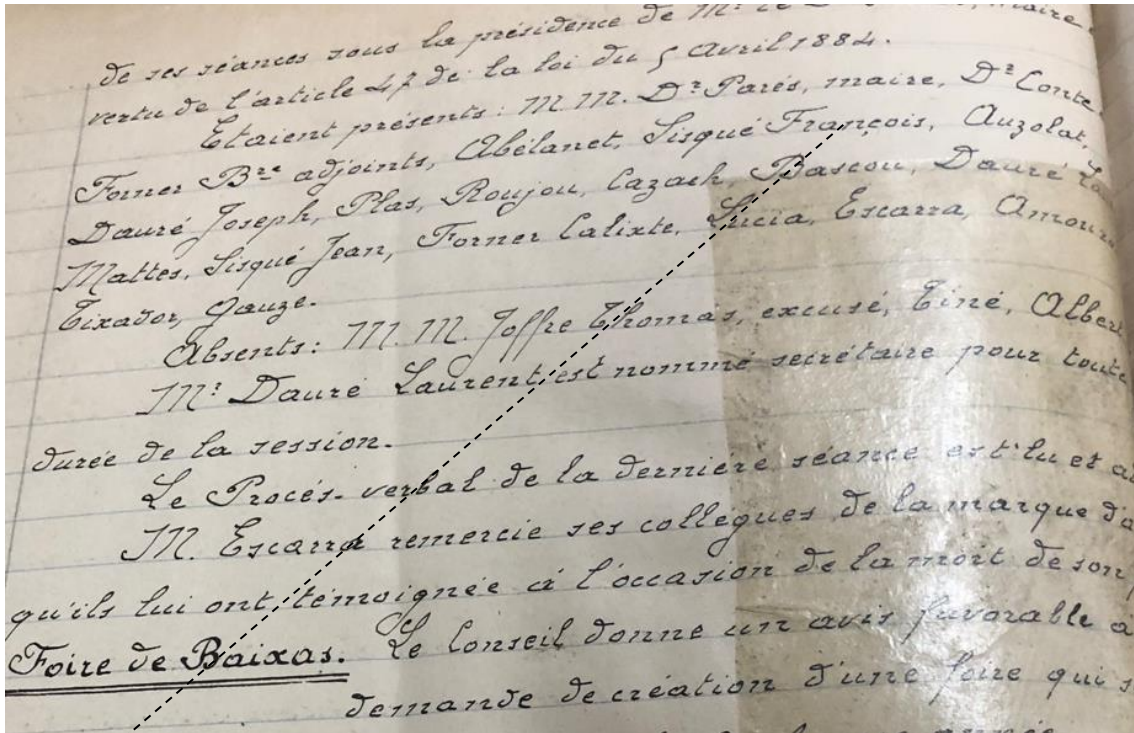 de ses séances sous la présidence de Mr le maire
vertu de l'article 47 de la loi du 5 Avril 1884.
Etaient présents: M.M. Dr Parés, maire, Dr Conte
Forner Bre adjoints, Abélanet, Sisqué François, Auzolat,
Dauré Joseph, Plas, Roujou, Cazach, Bascou, Dauré
Mattes, Sisqué Jean, Forner Calixte, Lucia, Escarra, Amouro
Tixador, Gauze.
Absents: M.M. Joffre Thomas, excusé, Tiné, Albert
Mr Dauré Laurent est nommé secrétaire pour toute
durée de la session.
Le Procès-verbal de la dernière séance est lu et a
M. Escarra remercie ses collègues de la marque d'a
qu'ils lui ont témoignée à l'occasion de la mort de son
Foire de Baixas. Le Conseil donne un avis favorable à
demande de création d'une foire qui s